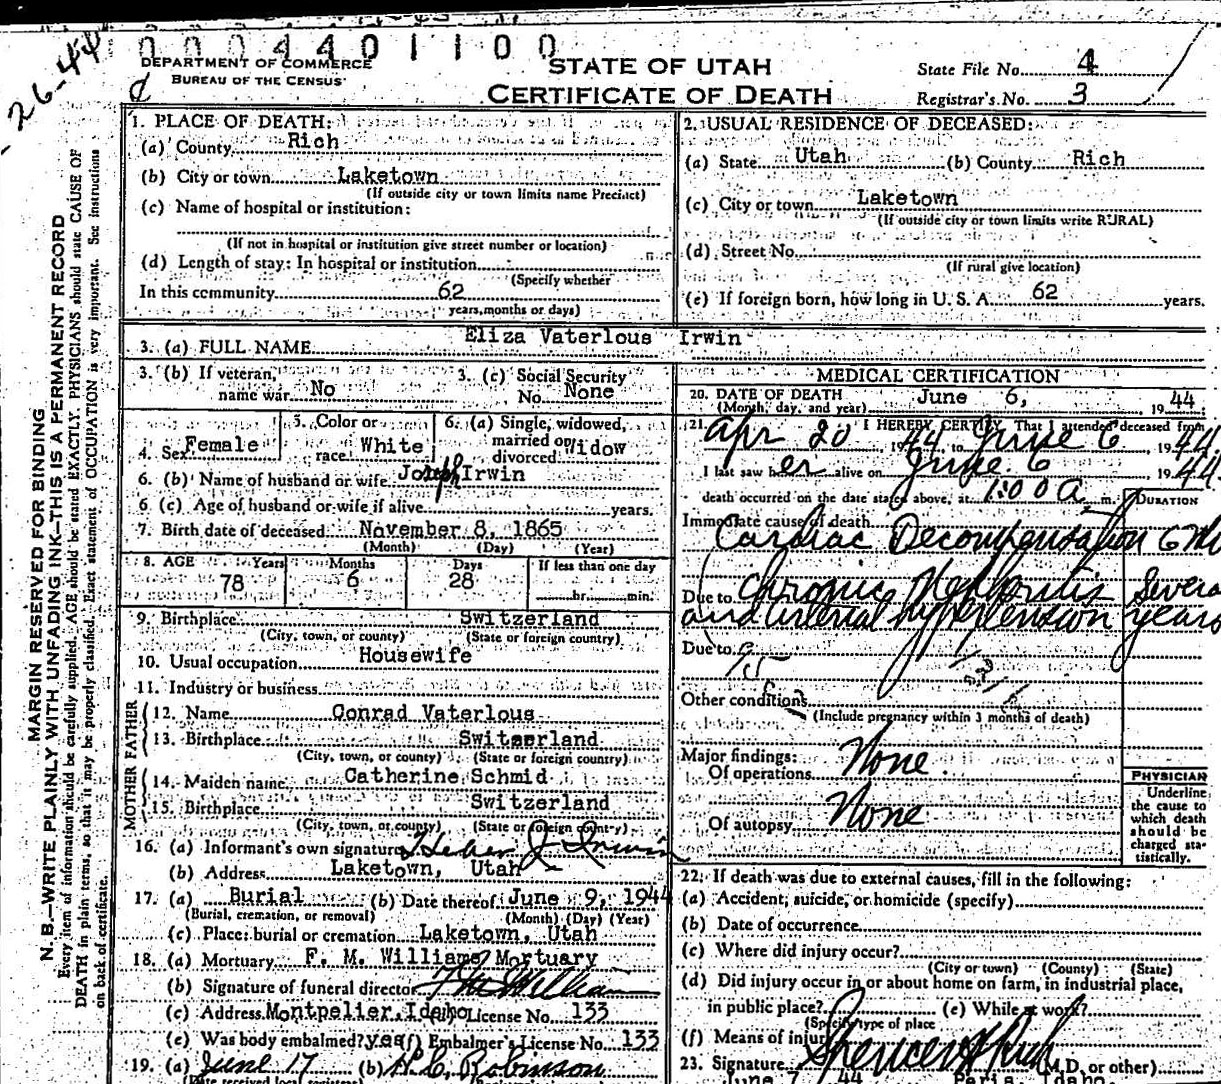 26-44
0004401100
DEPARTMENT OF COMMERCE
BUREAU OF THE CENSUS
STATE OF UTAH
CERTIFICATE OF DEATH
State File No. 4
Registrar's No. 3
MARGIN RESERVED FOR BINDING
N. B.—WRITE PLAINLY WITH UNFADING INK—THIS IS A PERMANENT RECORD
Every item of information should be carefully supplied. AGE should be stated EXACTLY. PHYSICIANS should state CAUSE OF
DEATH in plain terms, so that it may be properly classified. Exact statement of OCCUPATION is very important. See instructions
on back of certificate.
1. PLACE OF DEATH:
(a) County Rich
(b) City or town Laketown
(If outside city or town limits name Precinct)
(c) Name of hospital or institution:
(If not in hospital or institution give street number or location)
(d) Length of stay: In hospital or institution
(Specify whether
In this community 62
years, months or days)
2. USUAL RESIDENCE OF DECEASED:
(a) State Utah (b) County Rich
(c) City or town Laketown
(If outside city or town limits write RURAL)
(d) Street No.
(If rural give location)
(e) If foreign born, how long in U. S. A. 62 years.
3. (a) FULL NAME Eliza Vaterlous Irwin
3. (b) If veteran, name war No
3. (c) Social Security No. None
4. Sex Female
5. Color or race White
6. (a) Single, widowed, married or divorced Widow
6. (b) Name of husband or wife Joseph Irwin
6 (c) Age of husband or wife if alive years.
7. Birth date of deceased November 8, 1865
(Month) (Day) (Year)
8. AGE Years Months Days If less than one day
78 6 28 hr. min.
9. Birthplace Switzerland
(City, town, or county) (State or foreign country)
10. Usual occupation Housewife
11. Industry or business
FATHER
12. Name Conrad Vaterlous
13. Birthplace Switzerland
(City, town, or county) (State or foreign country)
MOTHER
14. Maiden name Catherine Schmid
15. Birthplace Switzerland
(City, town, or county) (State or foreign country)
16. (a) Informant's own signature Heber J Irwin
(b) Address Laketown, Utah
17. (a) Burial (b) Date thereof June 9, 1944
(Burial, cremation, or removal) (Month) (Day) (Year)
(c) Place: burial or cremation Laketown, Utah
18. (a) Mortuary F. M. Williams Mortuary
(b) Signature of funeral director F M William
(c) Address Montpelier, Idaho License No. 133
(e) Was body embalmed? yes (f) Embalmer's License No. 133
19. (a) June 17 (b) H. C. Robinson
(Date received local registrar)
MEDICAL CERTIFICATION
20. DATE OF DEATH June 6, 1944
(Month, day, and year)
21. I HEREBY CERTIFY, That I attended deceased from
Apr 20 1944 to June 6, 1944
I last saw her alive on June 6 1944
death occurred on the date stated above, at 1:00 A m. DURATION
Immediate cause of death
Cardiac Decompensation 6 Mo
Due to Chronic Nephritis Several
and arterial hypertension years
Due to
Other conditions
(Include pregnancy within 3 months of death)
Major findings:
Of operations None.
Of autopsy None
PHYSICIAN
Underline
the cause to
which death
should be
charged sta-
tistically.
22. If death was due to external causes, fill in the following:
(a) Accident, suicide, or homicide (specify)
(b) Date of occurrence
(c) Where did injury occur?
(City or town) (County) (State)
(d) Did injury occur in or about home on farm, in industrial place,
in public place? (e) While at work?
(Specify type of place
(f) Means of injury
23. Signature Spencer H Rich (M.D. or other)
June 7 44 Paris Idaho